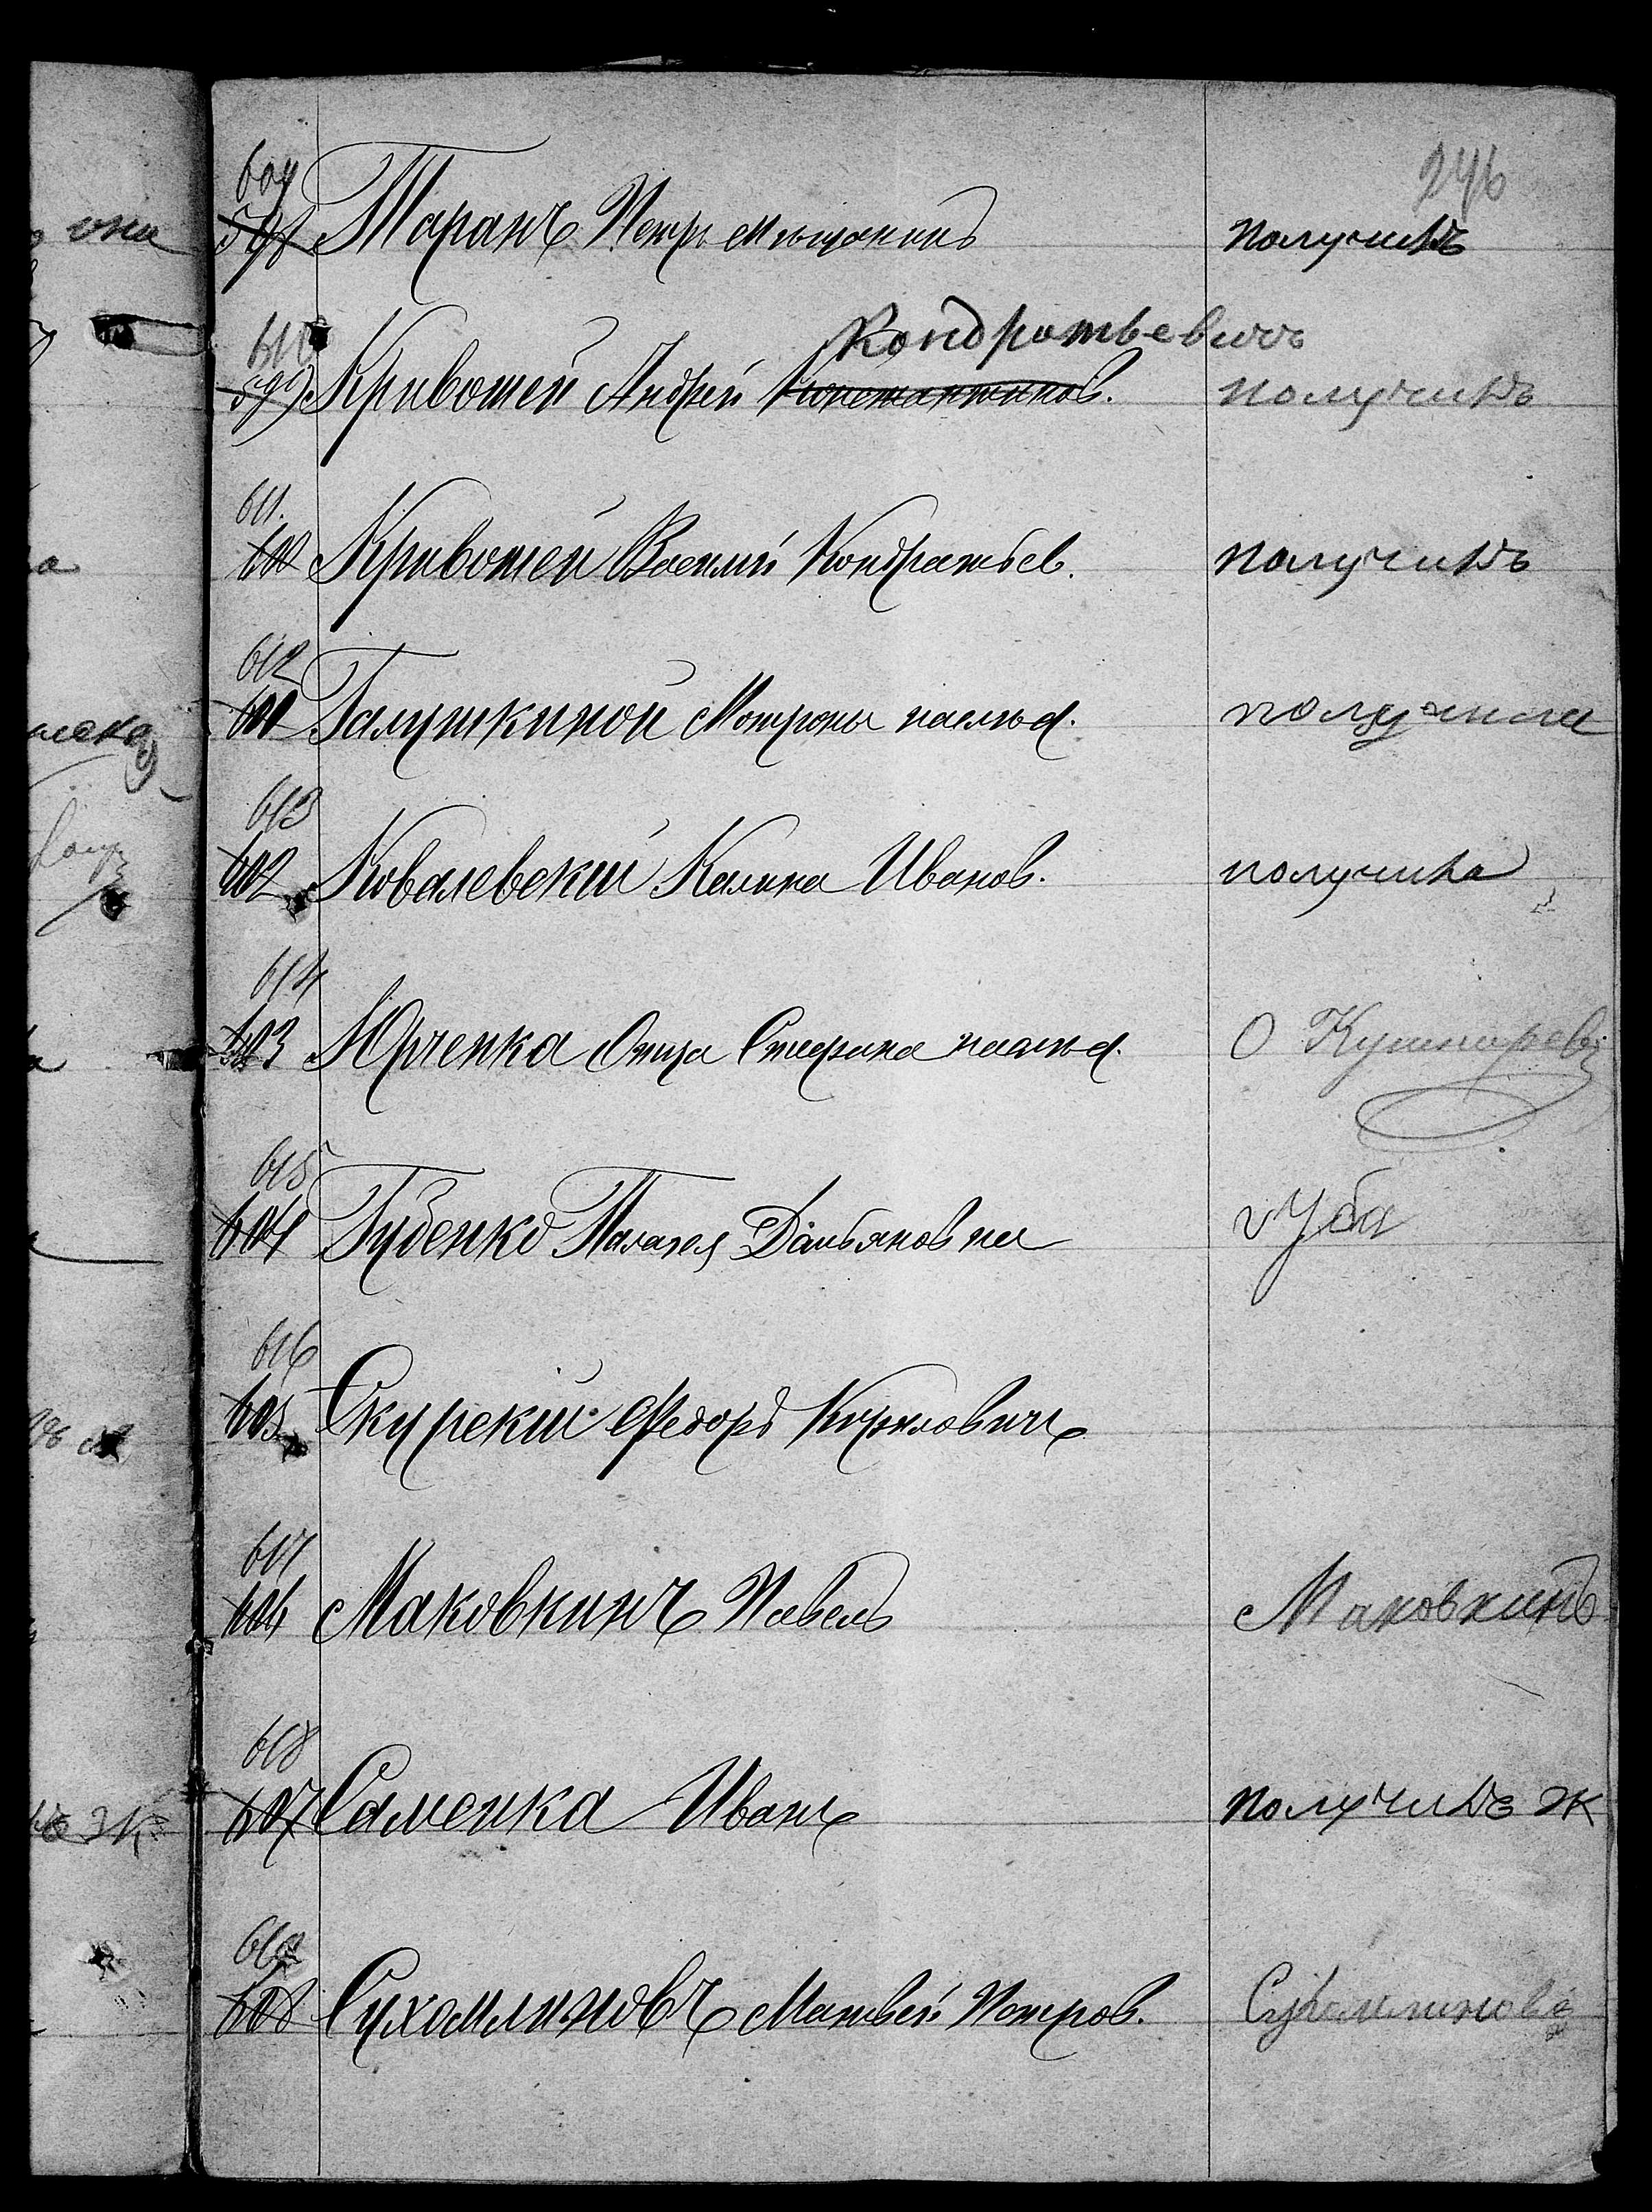 246
609
598 Таранъ Петръ мѣщанинъ получилъ
Кондратьевичъ
610
599 Кривошей Андрей Константинов. получилъ
611.
600 Кривошей Василій Кондратьев. получилъ
612
601 Галушкиной Мотроны наслѣд. получила
613
602 Ковалевскій Калина Иванов. получила
614
603 Юрченка Отца Стефана наслѣд. О Кушнарев
615
604 Губенко Палагея Дамьяновна
616
605 Скурскій Федоръ Кириловичъ
617
606 Маковкинъ Павелъ Маковкинъ
618
607 Саменка Иванъ получилъ Ж
619
608 Сухомлиновъ Матвей Петров. Сухомлиновъ